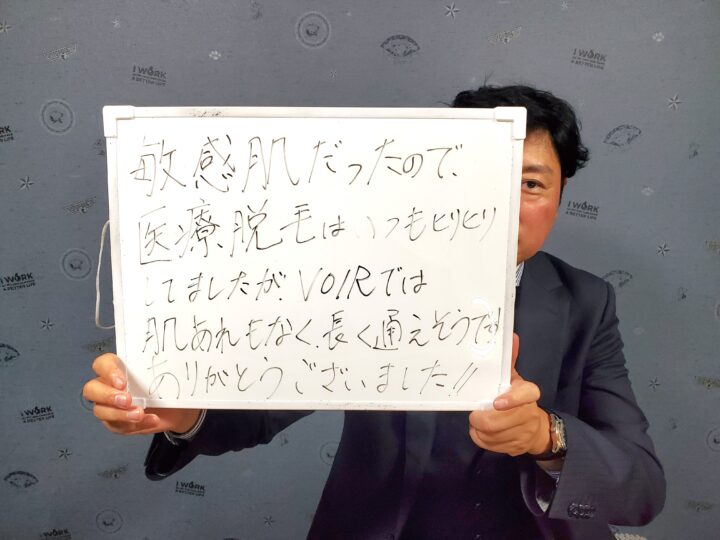 敏感肌だったので、
医療脱毛はいつもヒリヒリ
してましたが、VOIRでは
肌あれもなく、長く通えそうです!
ありがとうございました!!
I WORK
A BETTER LIFE
I WORK
A BETTER LIFE
I WORK
A BETTER LIFE
I WORK
A BETTER LIFE
I WORK
A BETTER LIFE
I WORK
I WORK
I WORK